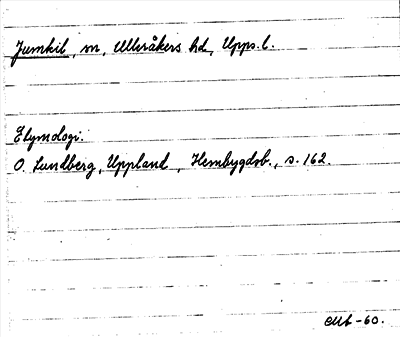 Jumkil, sn, Ulleråkers hd, Upps. l.
Etymologi:
O. Lundberg, Uppland, Hembygdsb., s. 162.
-60.